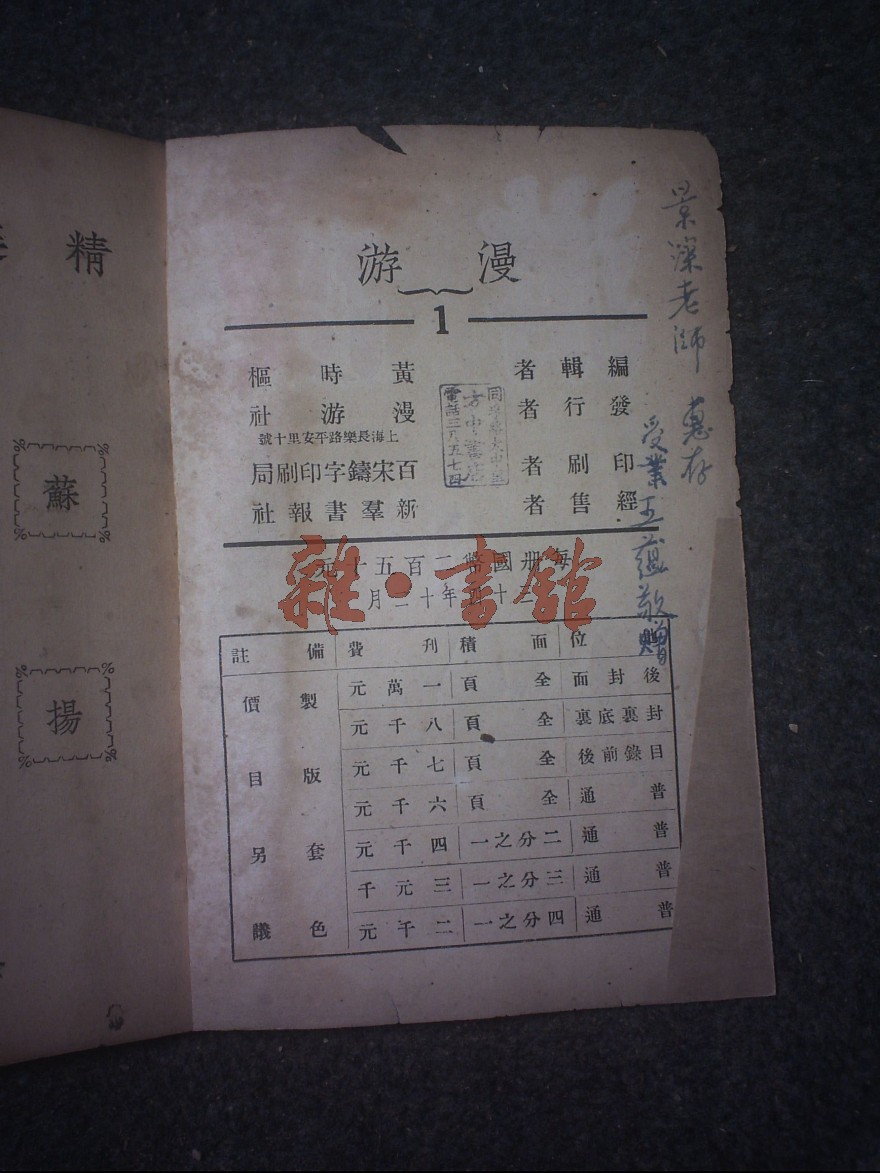 漫游
1
編輯者 黃時樞
發行者 漫游社
上海長樂路平安里十號
印刷者 百宋鑄字印刷局
經售者 新羣書報社
每册國幣二百五十元
年十二月
位 面積 刊費 備註
後封面 全頁 一萬元
封裏底裏 全頁 八千元
目錄前後 全頁 七千元
普通 全頁 六千元
普通 二分之一 四千元
普通 三分之一 三元千
普通 四分之一 二千元
製版套色
價目另議
景深老師 惠存
受業王 敬贈
電話三八五七四
雜·書館
精
蘇
揚